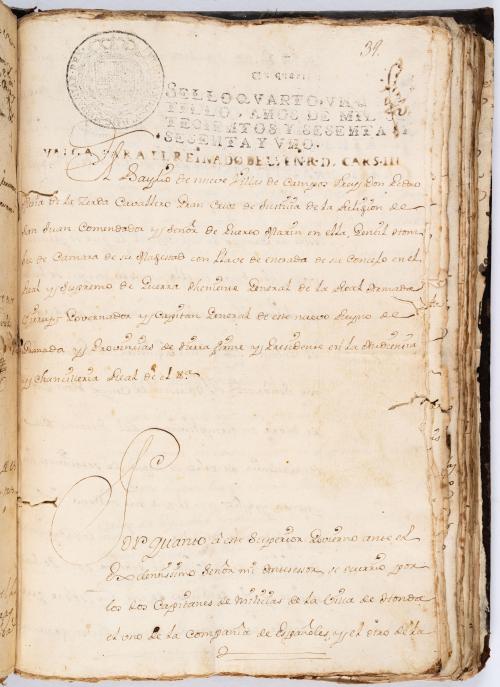 39.
SELLO QVARTO, VN
TILLO, AÑOS DE MIL
TECIENTOS Y SESENTA
SESENTA Y VNO.
PARA EL REINADO DEL SEÑR. D. CARS. III
El Baylio de nueve Villas de Campos Frey Don Pedro
Mesia de la Zerda Cavallero Gran Cruz de Justicia de la Religion de
San Juan Comendador y Señor de Puerto Marin en ella, Gentil Hom
bre de Camara de su Magestad con llave de entrada de su Consejo en el
Real y Supremo de Guerra Theniente General de la Real Armada
Governador y Capitan General de este nuevo Reyno de
Granada y Provincias de tierra firme y Presidente en la Audiencia
y Chancilleria Real de el &a
Por quanto a este Superior Govierno ante el
Excelentissimo Señor mi Antesesor, se ocurrio por
los dos Capitanes de Milicias de la Villa de Honda
el uno de la Compañia de Españoles, y el otro de la